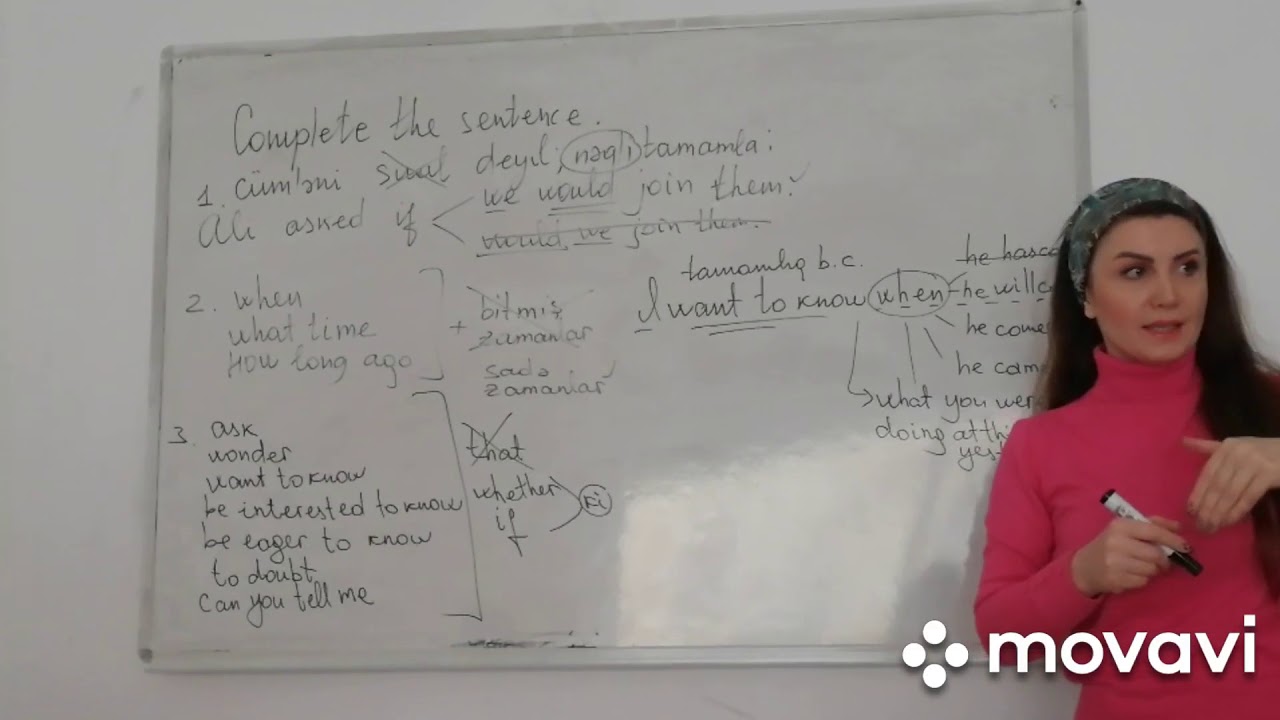 Complete the sentence.
1. cümləni sual deyil, nəqli tamamla:
Ali asked if
we would join them.
would we join them.
2. when
what time
How long ago
+ bitmiş
zamanlar
sadə
zamanlar
3. ask
wonder
want to know
be interested to know
be eager to know
to doubt
Can you tell me
that
whether
if
ki
tamamlıq b.c.
I want to know when
he will c
he come
he cam
what you wer
doing at thi
yest
movavi